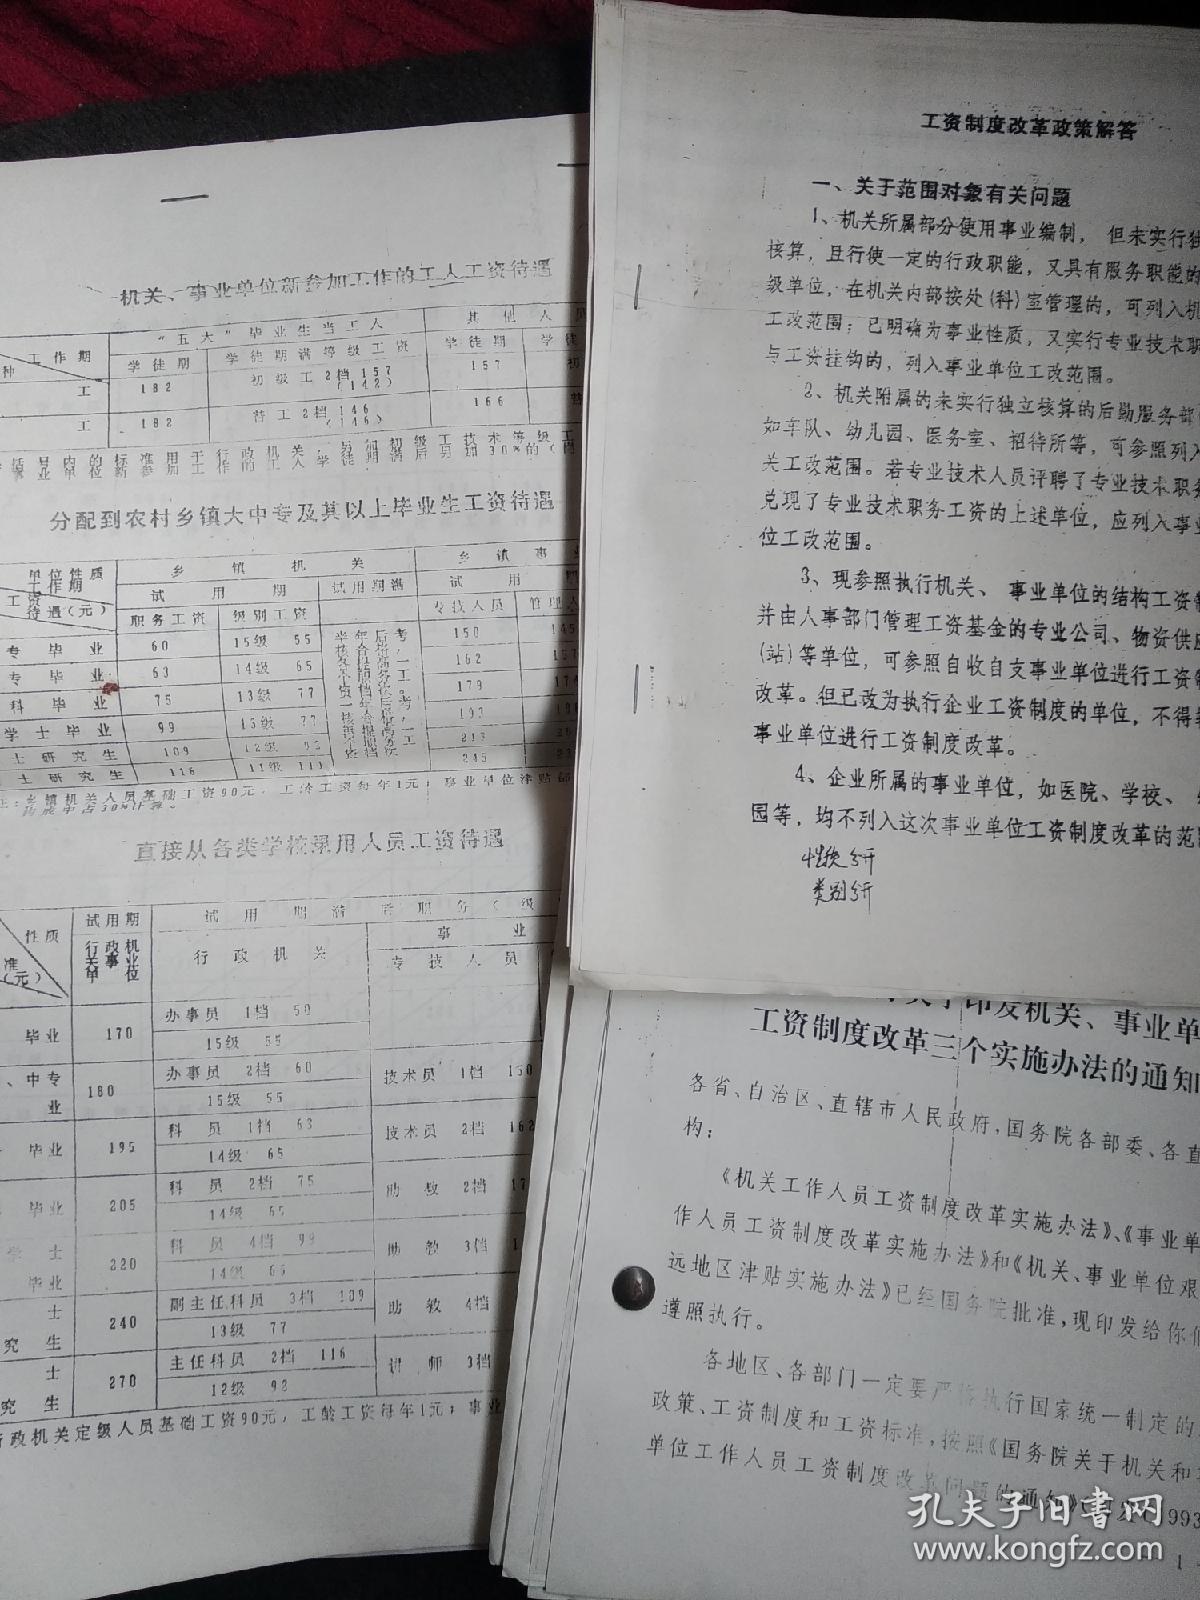 机关、事业单位新参加工作的工人工资待遇
工作期
种
"五大"毕业生当工人
其他人员
学徒期
学徒期满等级工资
学徒期
学徒
工
182
初级工2档157
(142)
157
初
工
182
普工2档146
(146)
166
普
分配到农村乡镇大中专及其以上毕业生工资待遇
单位性质
工作期
工资
待遇(元)
乡镇机关
乡镇事业
试用期
试用期满
试用
职务工资
级别工资
专技人员
管理人
专毕业
60
15级 55
150
145
专毕业
63
14级 65
162
157
科毕业
75
13级 77
179
174
学士毕业
99
13级 77
197
士研究生
109
12级 92
213
士研究生
116
11级 111
245
注:乡镇机关人员基础工资90元,工龄工资每年1元;事业单位津贴部
构成中占30%计算。
直接从各类学校录用人员工资待遇
性质
准
(元)
试用期
行政机
关事业
单位
试用期满后职务(级
行政机关
事业
专技人员
毕业
170
办事员 1档 50
15级 55
、中专
业
180
办事员 2档 60
15级 55
技术员 1档 150
毕业
195
科员 1档 63
14级 65
技术员 2档 162
毕业
205
科员 2档 75
14级 65
助教 2档 17
学士
毕业
220
科员 4档 99
14级 65
助教 3档 1
士
究生
240
副主任科员 3档 109
13级 77
助教 4档
士
究生
270
主任科员 2档 116
12级 92
讲师 3档
行政机关定级人员基础工资90元,工龄工资每年1元;事业
工资制度改革政策解答
一、关于范围对象有关问题
1、机关所属部分使用事业编制, 但未实行独
核算,且行使一定的行政职能,又具有服务职能的
级单位,在机关内部按处(科)室管理的,可列入机
工改范围;已明确为事业性质,又实行专业技术职
与工资挂钩的,列入事业单位工改范围。
2、机关附属的未实行独立核算的后勤服务部
如车队、幼儿园、医务室、招待所等,可参照列入
关工改范围。若专业技术人员评聘了专业技术职务
兑现了专业技术职务工资的上述单位,应列入事业
位工改范围。
3、现参照执行机关、 事业单位的结构工资制
并由人事部门管理工资基金的专业公司、物资供应
(站)等单位,可参照自收自支事业单位进行工资制
改革。但已改为执行企业工资制度的单位,不得按
事业单位进行工资制度改革。
4、企业所属的事业单位,如医院、学校、
园等,均不列入这次事业单位工资制度改革的范围
性质分开
类别分开
关于印发机关、事业单
工资制度改革三个实施办法的通知
各省、自治区、直辖市人民政府,国务院各部委、各直
构:
《机关工作人员工资制度改革实施办法》、《事业单
作人员工资制度改革实施办法》和《机关、事业单位艰
远地区津贴实施办法》已经国务院批准,现印发给你们
遵照执行。
各地区、各部门一定要严格执行国家统一制定的
政策、工资制度和工资标准,按照《国务院关于机关和
单位工作人员工资制度改革问题的通知》(国发〔1993
1
孔夫子旧书网
www.kongfz.com